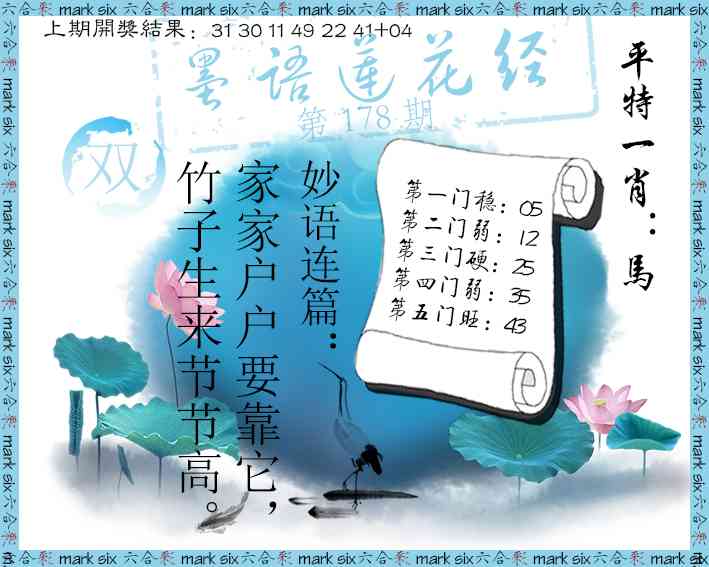 上期開獎結果：31 30 11 49 22 41+04
墨语莲花经
第178期
双
平特一肖：馬
第一门稳：05
第二门弱：12
第三门硬：25
第四门弱：35
第五门旺：43
妙语连篇：
家家户户要靠它，
竹子生来节节高。
mark six六合彩 mark six六合彩 mark six六合彩 mark six六合彩 mark six六合彩 mark six六合彩